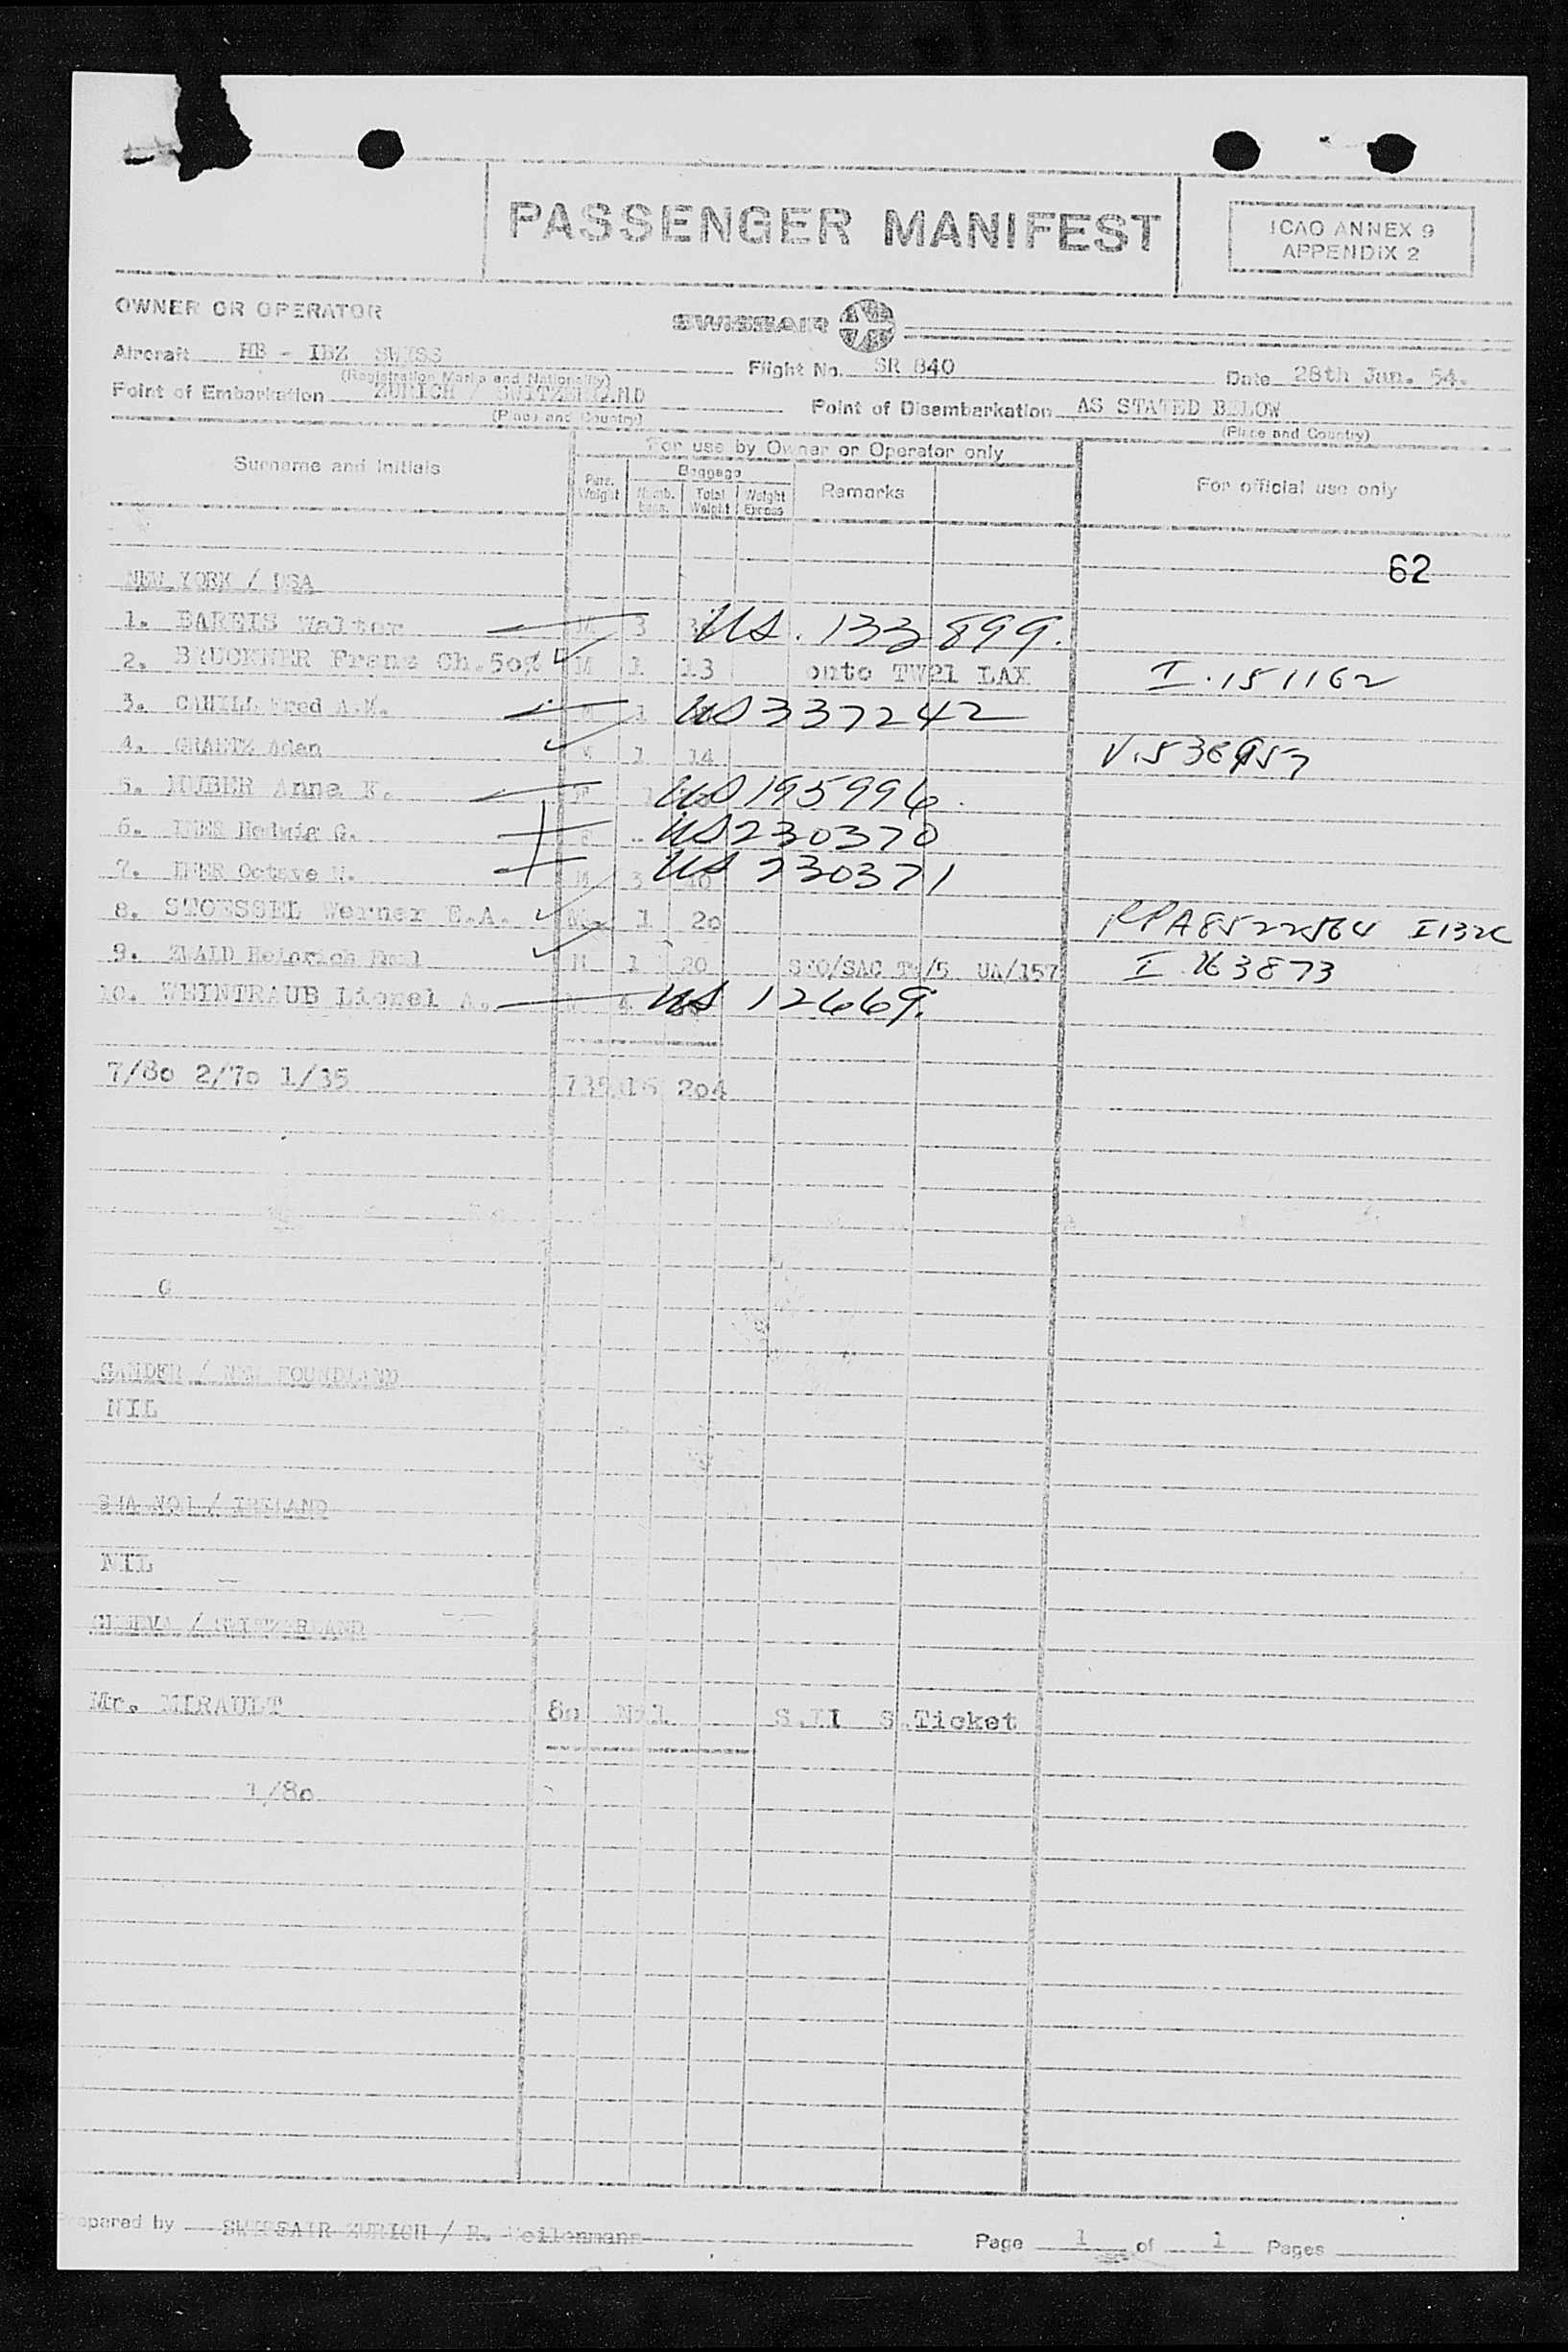 PASSENGER MANIFEST
ICAO ANNEX 9
APPENDIX 2
OWNER OR OPERATOR
SWISSAIR
Aircraft HB - IBZ SWISS
(Registration Marks and Nationality)
Flight No. SR 840
Date 28th Jan. 54.
Point of Embarkation ZURICH / SWITZERLAND
(Place and Country)
Point of Disembarkation AS STATED BELOW
(Place and Country)
Surname and Initials
For use by Owner or Operator only
Baggage
Weight
Total Weight
Weight Excess
Remarks
For official use only
62
NEW YORK / USA
1. BAREIS Walter M 3 US. 133899.
2. BRUCKNER Franz Ch. M 1 13 onto TW21 LAX I.151162
3. CAHILL Fred A. 1 US 337242
4. 1 14
5. HUBER Anna US 195996.
6. Hedwig G. US 230370
7. Octave M 3 40 US 230371
8. STOESSEL Werner E.A. M. 1 20
9. ZWALD Heinrich M 1 20 SFO/SAC TW/5 UA/157 I. 163873
10. WEINTRAUB Lionel A. 4 US 12669.
7/80 2/70 1/35 735 16 204
GANDER / NEW FOUNDLAND
NIL
SHANNON / IRELAND
NIL
GENEVA / SWITZERLAND
Mr. MIRAULT 80 Nil S.II S.Ticket
1/80
Prepared by SWISSAIR ZURICH / R. Weilenmann
Page 1 of 1 Pages